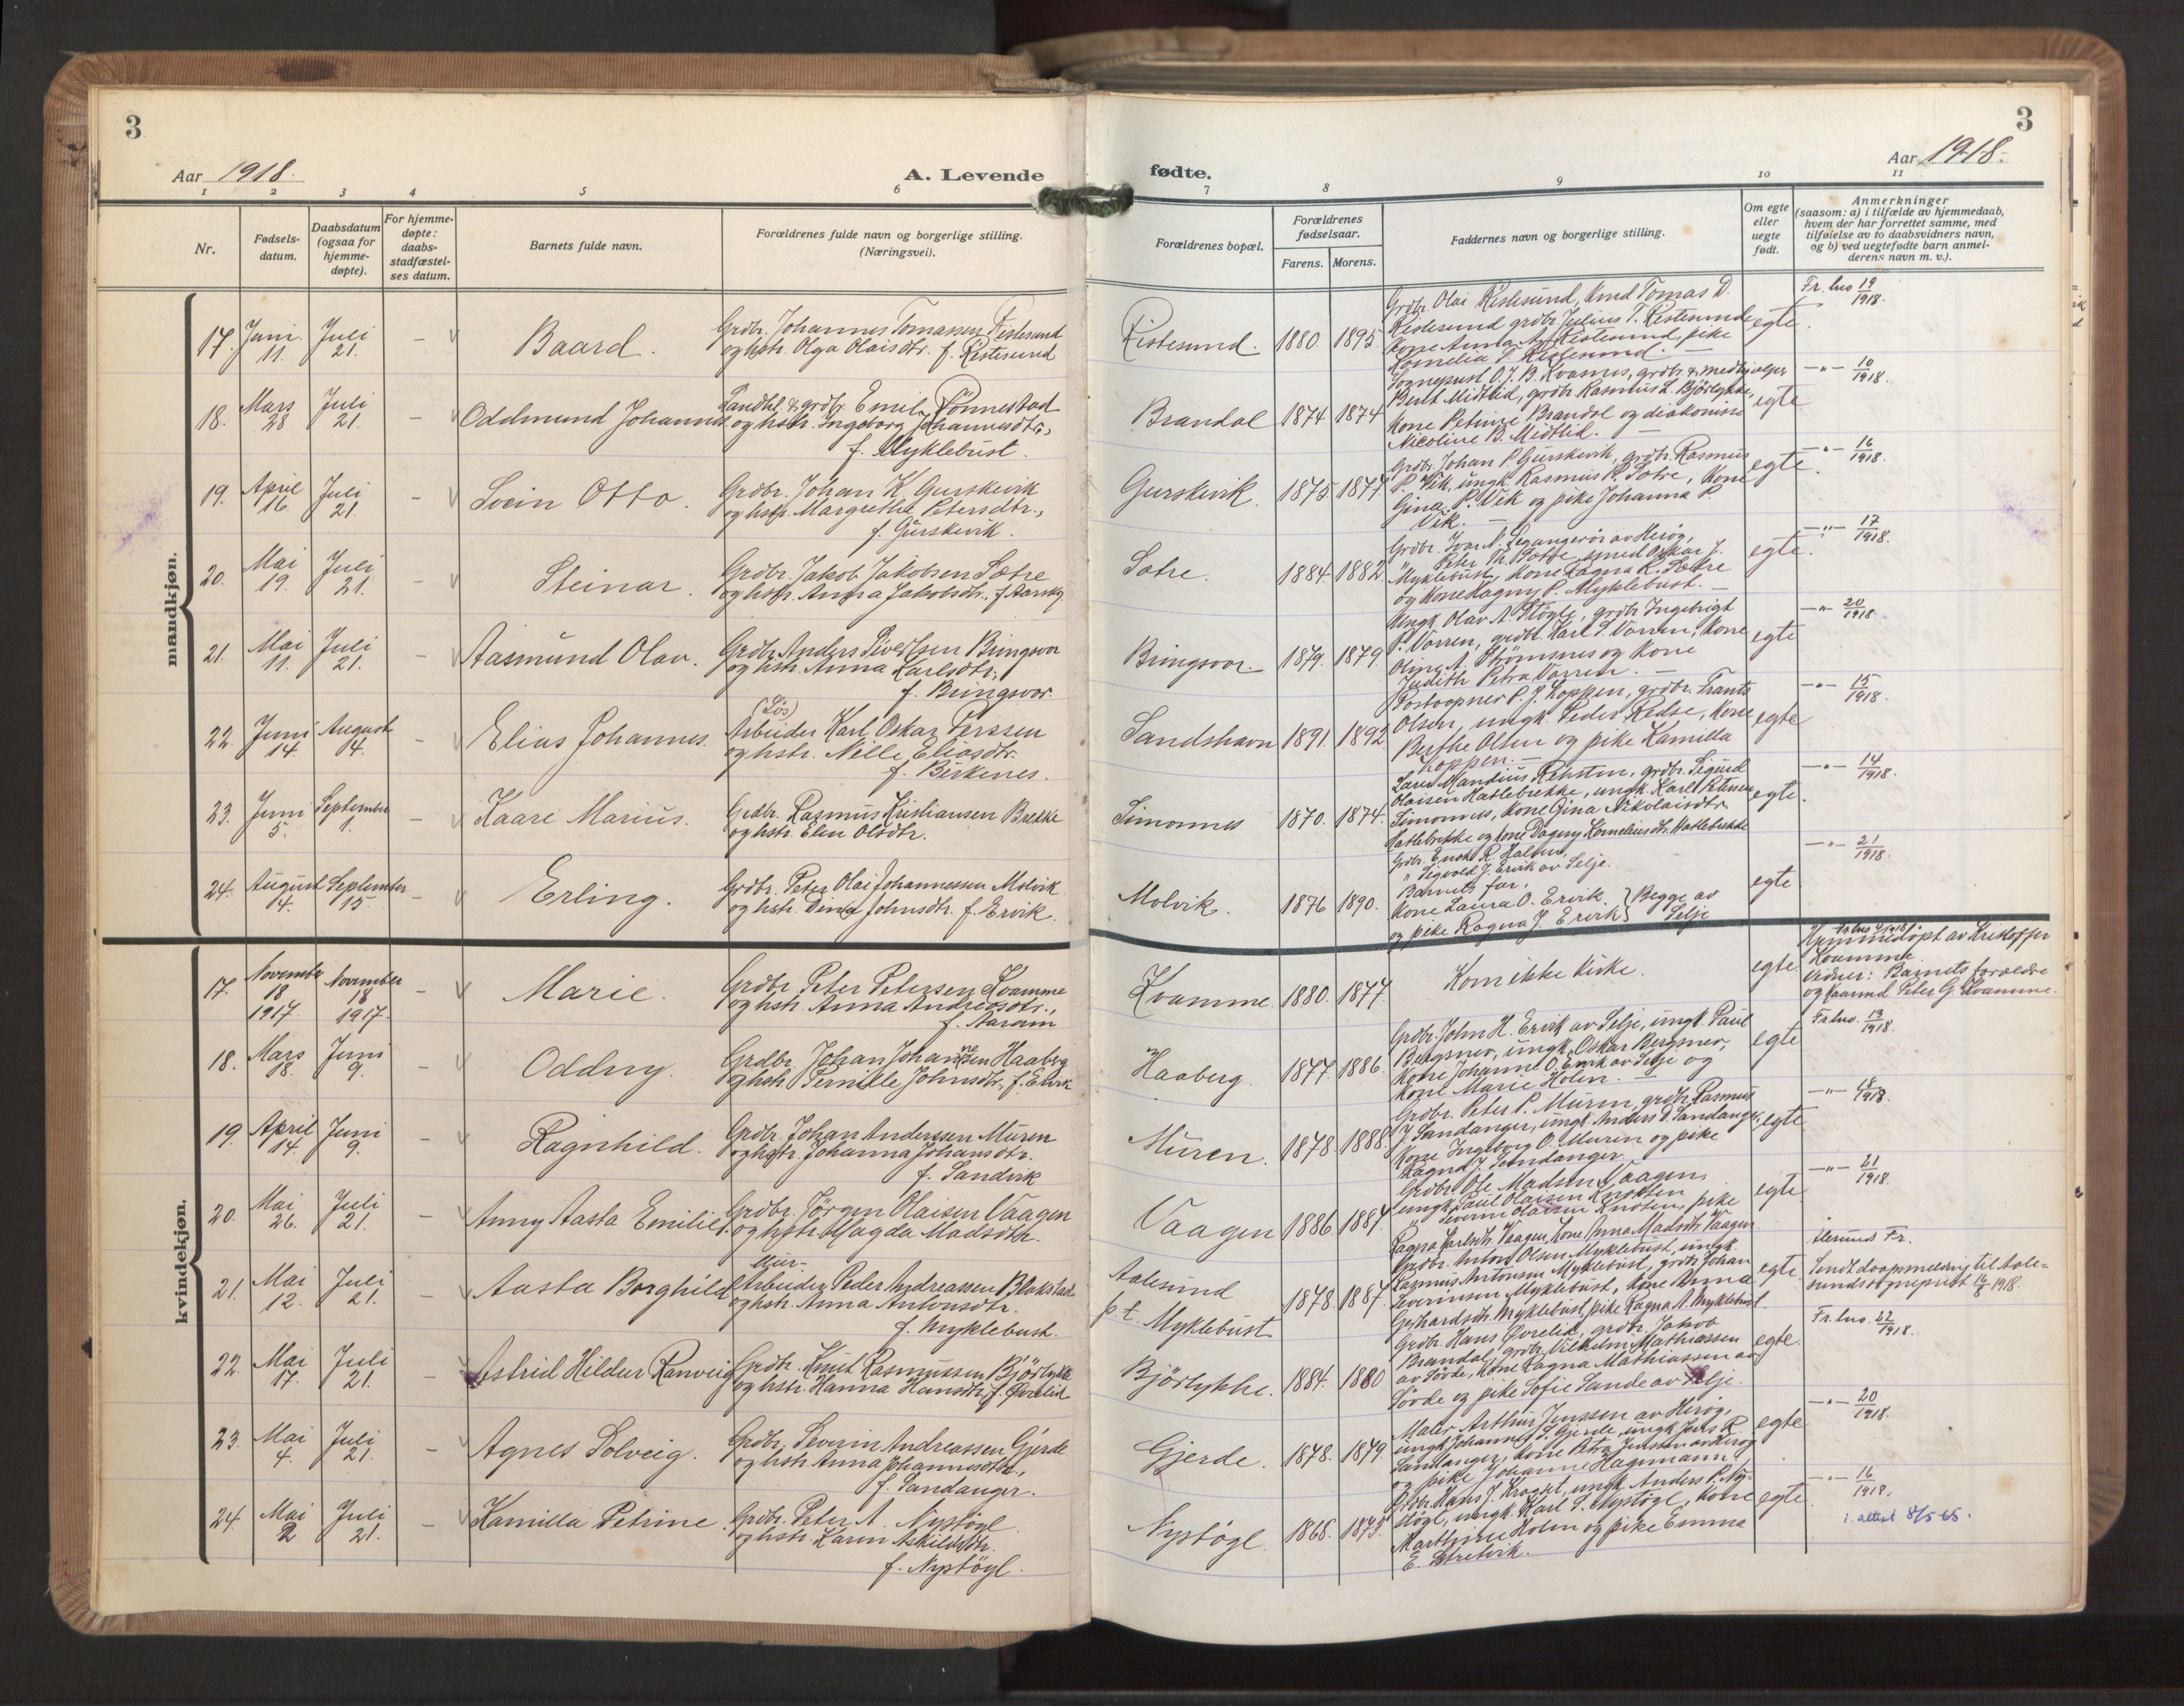 3
Aar 1918.
A. Levende
1 2 3 4 5 6
Nr.
Fødsels-
datum.
Daabsdatum
(ogsaa for
hjemme-
døpte).
For hjemme-
døpte:
daabs-
stadfæstel-
ses datum.
Barnets fulde navn.
Forældrenes fulde navn og borgerlige stilling.
(Næringsvei).
mandkjøn.
17. Juni 11. Juli 21. - Baard.
Grdbr. Johannes Tomassen Ristesund
og hstr. Olga Olaisdtr. f. Ristesund
18. Mars 28 Juli 21. - Oddmund Johannes
Landhl. & grdbr. Emil Rønnestad
og hstr. Ingeborg Johannesdtr.,
f. Myklebust.
19. April 16. Juli 21. - Svein Otto.
Grdbr. Johan K. Gurskevik
og hstr. Margrethe Petersdtr.,
f. Gurskevik.
20. Mai 19. Juli 21. - Steinar.
Grdbr. Jakob Jakobsen Sætre
og hstr. Anna Jakobsdtr.
21. Mai 11. Juli 21. - Aasmund Olav.
Grdbr. Anders Sivertsen Bringsvor
og hstr. Anna Karlsdtr.,
f. Bringsvor.
22. Juni 14. August 4. - Elias Johannes.
(Løs)
Arbeider Karl Oskar Perssen
og hstr. Nille Eliasdtr.
f. Birkenes.
23. Juni 5. September 1. - Kaare Marius.
Grdbr. Rasmus Kristiansen Brekke
og hstr. Elen Olsdtr.
24. August 14. September 15. - Erling.
Grdbr. Peter Olai Johannessen Molvik
og hstr. Dina Johnsdtr. f. Ervik.
kvindekjøn.
17. November 18 1917. November 18 1917. - Marie.
Grdbr. Peter Petersen Kvamme
og hstr. Anna Andreasdtr.,
f. Aaram
18. Mars 18. Juni 9. - Oddny.
Grdbr. Johan Johannesen Haaberg
og hstr. Pernille Johnsdtr. f. Ervik
19. April 14. Juni 9. - Ragnhild.
Grdbr. Johan Anderssen Muren
og hstr. Johanna Johansdtr.
f. Sandvik
20. Mai 26. Juli 21. - Anny Aasta Emilie.
Grdbr. Jørgen Olaisen Vaagen
og hstr. Magda Madsdtr.
21. Mai 12. Juli 21. - Aasta Borghild
Mur-
Arbeider Peder Andreassen Blakstad
og hstr. Anna Antonsdtr.
f. Myklebust.
22. Mai 17. Juli 21. - Astrid Hildur Ranveig
Grdbr. Knut Rasmussen Bjørlykke
og hstr. Hanna Hansdtr. f. Øvrelid
23. Mai 4. Juli 21. - Agnes Solveig.
Grdbr. Severin Andreassen Gjerde
og hstr. Anna Johannesdtr.,
f. Sandanger.
24. Mai 2 Juli 21. - Kamilla Petrine.
Grdbr. Peter A. Nystøgl
og hstr. Karen Askildsdtr.
f. Nystøgl.
3
Aar 1918.
fødte.
7 8 9 10 11
Forældrenes bopæl.
Forældrenes
fødselsaar.
Farens. Morens.
Faddernes navn og borgerlige stilling.
Om egte
eller
uegte
født.
Anmerkninger
(saasom: a) i tilfælde av hjemmedaab,
hvem der har forrettet samme, med
tilføielse av to daabsvidners navn,
og b) ved uegtefødte barn anmel-
derens navn m. v.).
Ristesund. 1880. 1895. egte. Fr. lno 19/1918.
Grdbr. Olai Ristesund, Knud Tomas D.
Ristesund grdbr. Julius T. Ristesund
Kone Anna A. Ristesund, pike
Kornelia T. Ristesund. -
Brandal 1874 1874 egte -"- 10/1918.
Sogneprest O. J. B. Kvasnes, grdbr. & medhjælper
Berth Midtlid, grdbr. Rasmus L. Bjørlykke,
Kone Petrine Brandal og diakonisse
Nicoline B. Midtlid. -
Gurskevik. 1875 1877 egte. -"- 16/1918.
Grdbr. Johan P. Gurskevik, grdbr. Rasmus
P. Vik, ungk. Rasmus R. Sætre, Kone
Gina P. Vik og pike Johanna P.
Vik. -
Sætre. 1884. 1882. egte. -"- 17/1918.
Grdbr. Ivar N. Leganger av Herøy,
" Peter M. Sætre, smed Oskar J.
Myklebust, Kone Ragna R. Sætre
og Kone Dagny P. Myklebust. -
Bringsvor. 1879. 1879. egte -"- 20/1918.
Ungk. Olav A. Støyle, grdbr. Ingebrigt
P. Vorren, grdbr. Karl S. Vorren, Kone
Oline A. Strømsnes og Kone
Judith Petra Vorren. -
Sandshavn 1891. 1892 egte -"- 15/1918.
Postaapner P. J. Koppen, grdbr. Frants
Olsen, ungk. Peder Redse, Kone
Berthe Olsen og pike Kamilla
Koppen. -
Simonnes 1870. 1874. egte. -"- 14/1918.
Lars Mandius Riksten, grdbr. Sigurd
Olaisen Hatlebrekke, ungk. Karl Petersen
Simonnes, Kone Gina Nikolaisdtr.
Hatlebrekke og kone Dagny Korneliusdtr. Hatlebrekke
Molvik. 1876 1890. egte -"- 21/1918.
Grdbr. Enok R. Halsen,
" Sigvald J. Ervik av Selje.
Barnets far,
Kone Laura O. Ervik. } Begge av
og pike Ragna J. Ervik } Selje
Kvamme 1880. 1877. Kom ikke kirke. egte.
Hjemmedøpt av Kristoffer
Kvamme.
Vidner: Barnets forældre
og Kaarmd Peter G. Kvamme.
Haaberg. 1877. 1886. egte Fr. lno. 13/1918.
Grdbr. John H. Ervik av Selje, ungk. Paul
Bergsnev, ungk. Oskar Bergsnev,
Kone Johanne O. Ervik av Selje og
Kone Marie Holen. -
Muren. 1878. 1888. egte -"- 18/1918.
Grdbr. Peter P. Muren, grdbr. Rasmus
J. Sandanger, ungk. Anders D. Sandanger,
Kone Ingeborg O. Muren og pike
Ragna J. Sandanger
Vaagen 1886. 1887. egte -"- 21/1918.
Grdbr. Ole Madsen Vaagen,
ungk. Paul Olaisen Knotten
" Severin Olaisen Knotten, pike
Ragna Karlsdtr. Vaagen, Kone Anna Madsdtr. Vaagen
Aalesund
p.t. Myklebust 1878. 1887. egte.
Grdbr. Anton Olsen Myklebust, ungk.
Rasmus Antonsen Myklebust, grdbr. Johan
Severinsen Myklebust, Kone Anna
Gerhardsdtr. Myklebust, pike Ragna A. Myklebust.
Alesund Fr.
Sendt daapsmelding til Aale-
sunds sogneprest 16/8 1918.
Bjørlykke. 1884. 1880 egte. Fr. lno. 22/1918.
Grdbr. Hans Øvrelid, grdbr. Jakob
Brandal, grdbr. Vilhelm Mathiassen
av Sørde, Kone Ragna Mathiassen av
Sørde og pike Sofie Sande av Selje.
Gjerde. 1878. 1879. egte -"- 20/1918.
Maler Arthur Jenssen av Herøy,
ungk. Johannes S. Gjerde, ungk. Jens R.
Sandanger, Kone Petra Jenssen av Herøy
og pike Johanne Hagemann.
Nystøgl. 1868. 1875. egte. -"- 16/1918.
Grdbr. Hans J. Kragset, ungk. Anders P. Ny-
støgl, ungk. Karl S. Nystøgl, Kone
Marthine Holm og pike Emma
E.
attest 8/5 65.